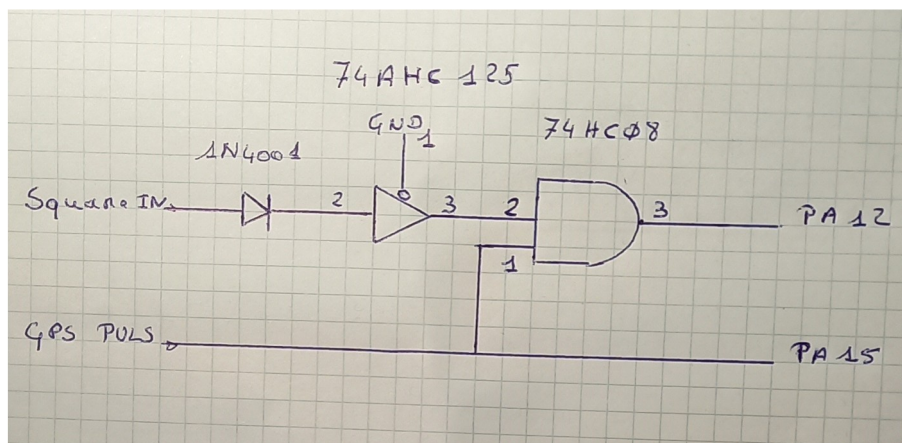 74AHC 125
GND
1
74HC08
1N4001
Square IN
2
3
2
3
PA 12
1
GPS PULS
PA 15